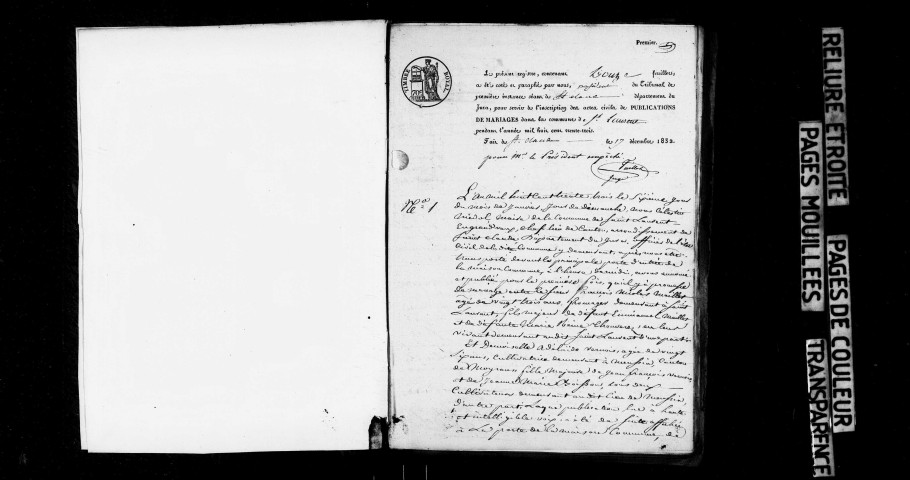 Premier.
TIMBRE ROYAL
Le présent registre, contenant Douze feuillets,
a été coté et paraphé par nous, président du Tribunal de
première instance séant de St Claude département du
Jura, pour servir de l'inscription des actes civils de PUBLICATIONS
DE MARIAGES dans la commune de St Laurent
pendant l'année mil huit cent trente-trois.
Fait à St Claude le 17 décembre 1832.
pour Mr le Président empêché
Juge
No 1
L'an mil huit cent trente trois le six
du mois de Janvier jour de dimanche, nous Célestin
Vidal Maire de la Commune de Saint Laurent
en grandvaux, chef lieu de Canton, arrondissement de
Saint Claude Département du Jura, officier de l'état
Civil de la dite Commune y demeurant, après nous être
transporté devant la principale porte d'entrée de
la maison Commune, à l'heure de midi, avons annoncé
et publié pour la première fois, qu'il y a promesse
de mariage entre le sieur François Nicolas Maillet
agé de vingt trois ans, fromager demeurant à Saint
Laurent, fils majeur de défunt Emmanuel Maillet
et de défunte Marie Rosine Thouverez, de leur
vivant demeurant au dit Saint Laurent d'une part
Et Demoiselle Adélaïde Vernois, agée de vingt
six ans, Cultivatrice demeurant à Meussia, Canton
de Moyrans fille Majeure de Jean François Vernois
et de Jeanne Marie, tous deux
Cultivateurs demeurant au dit lieu de Meussia
d'autre part. Laquelle publication lue à haute
et intelligible voix, a été de suite affichée
à la porte de la maison Commune, de
RELIURE ETROITE
PAGES MOUILLEES
PAGES DE COULEUR
TRANSPARENCE